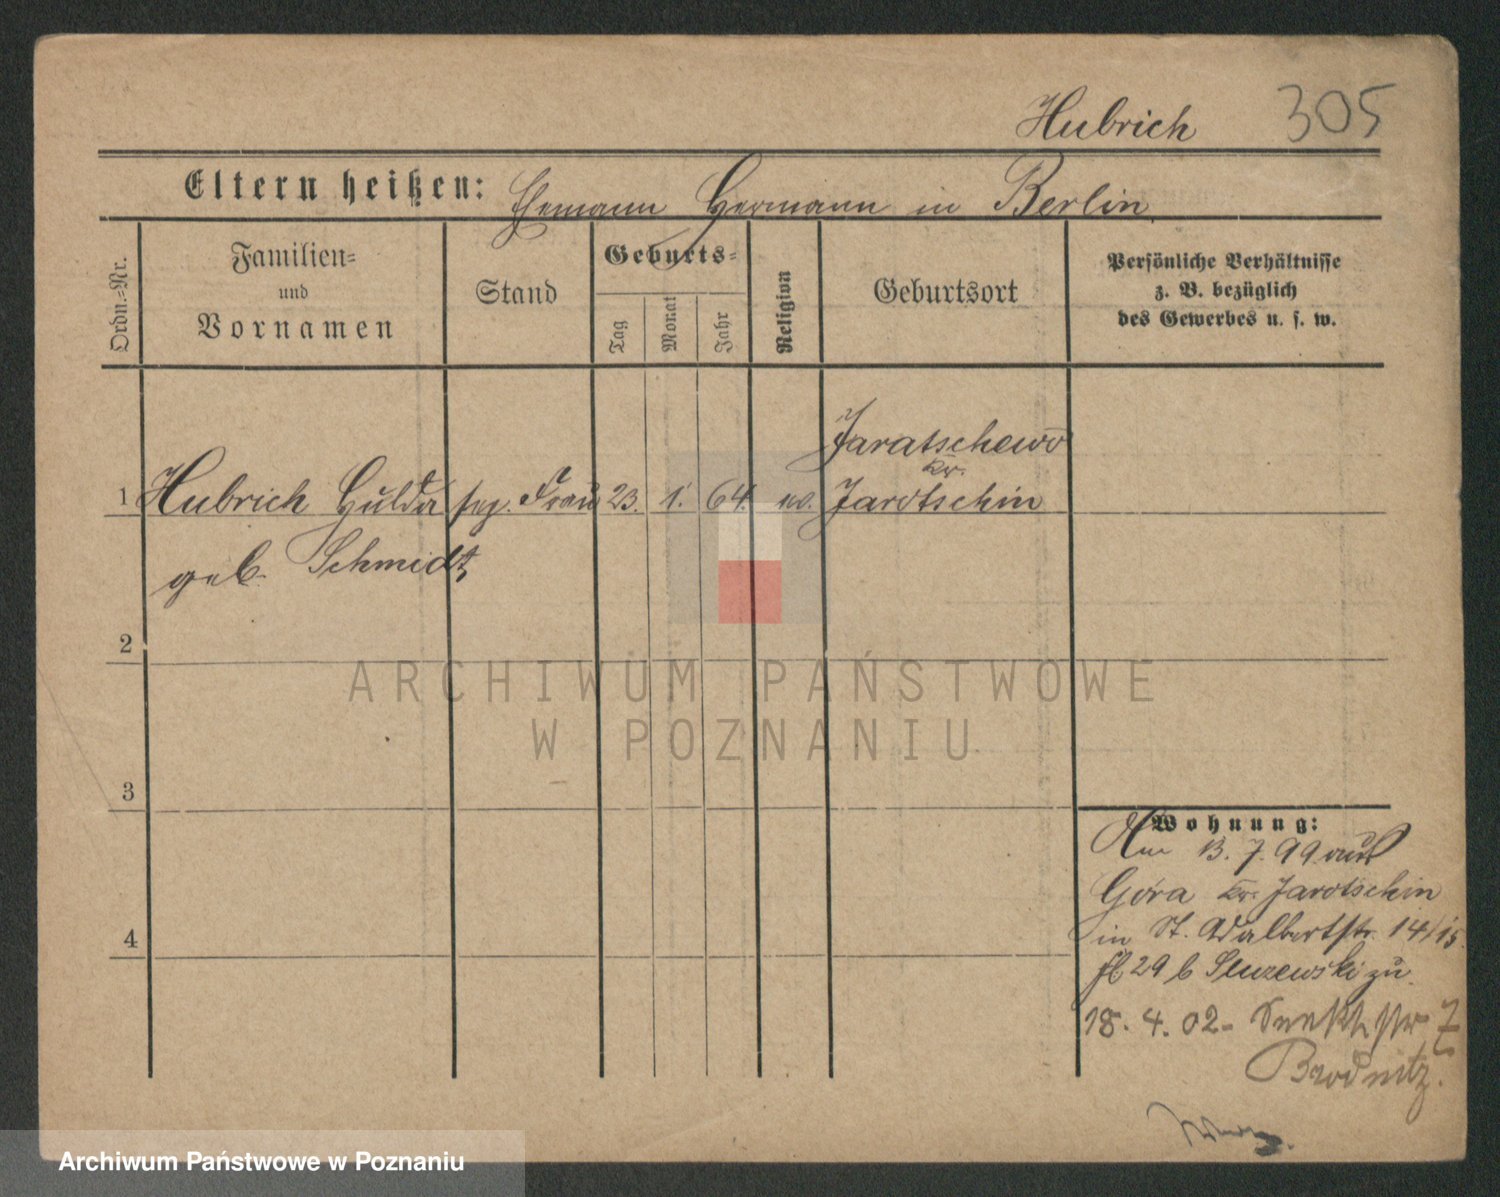 Hubrich 305
Eltern heißen: Ehemann Hermann in Berlin
Ordn.-Nr.
Familien-
und
Vornamen
Stand
Geburts-
Tag
Monat
Jahr
Religion
Geburtsort
Persönliche Verhältnisse
z. B. bezüglich
des Gewerbes u. s. w.
Jaratschewo
Kr.
1 Hubrich Hulda sep. Frau 23. 1. 64. ev. Jarotschin
geb. Schmidt
2
3
4
Wohnung:
Am 13. 7. 99 aus
Góra Kr. Jarotschin
in St. Adalbertstr. 14/15
29 b Sluzewski zu.
18. 4. 02 - 7
Brodnitz.
ARCHIWUM PAŃSTWOWE
W POZNANIU
Archiwum Państwowe w Poznaniu